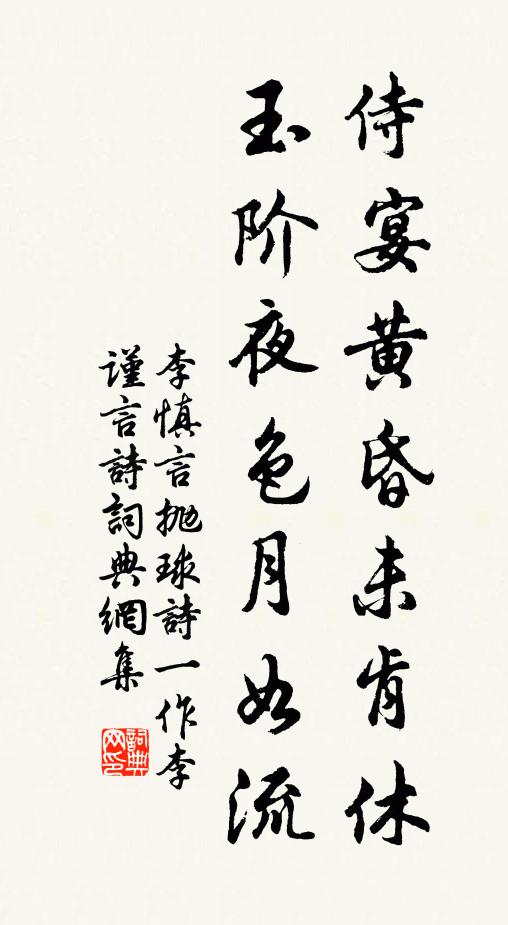 侍宴黄昏未肯休
玉阶夜色月如流
李慎言抛球詩一作李
谨言詩詞典網集
詞典
网印